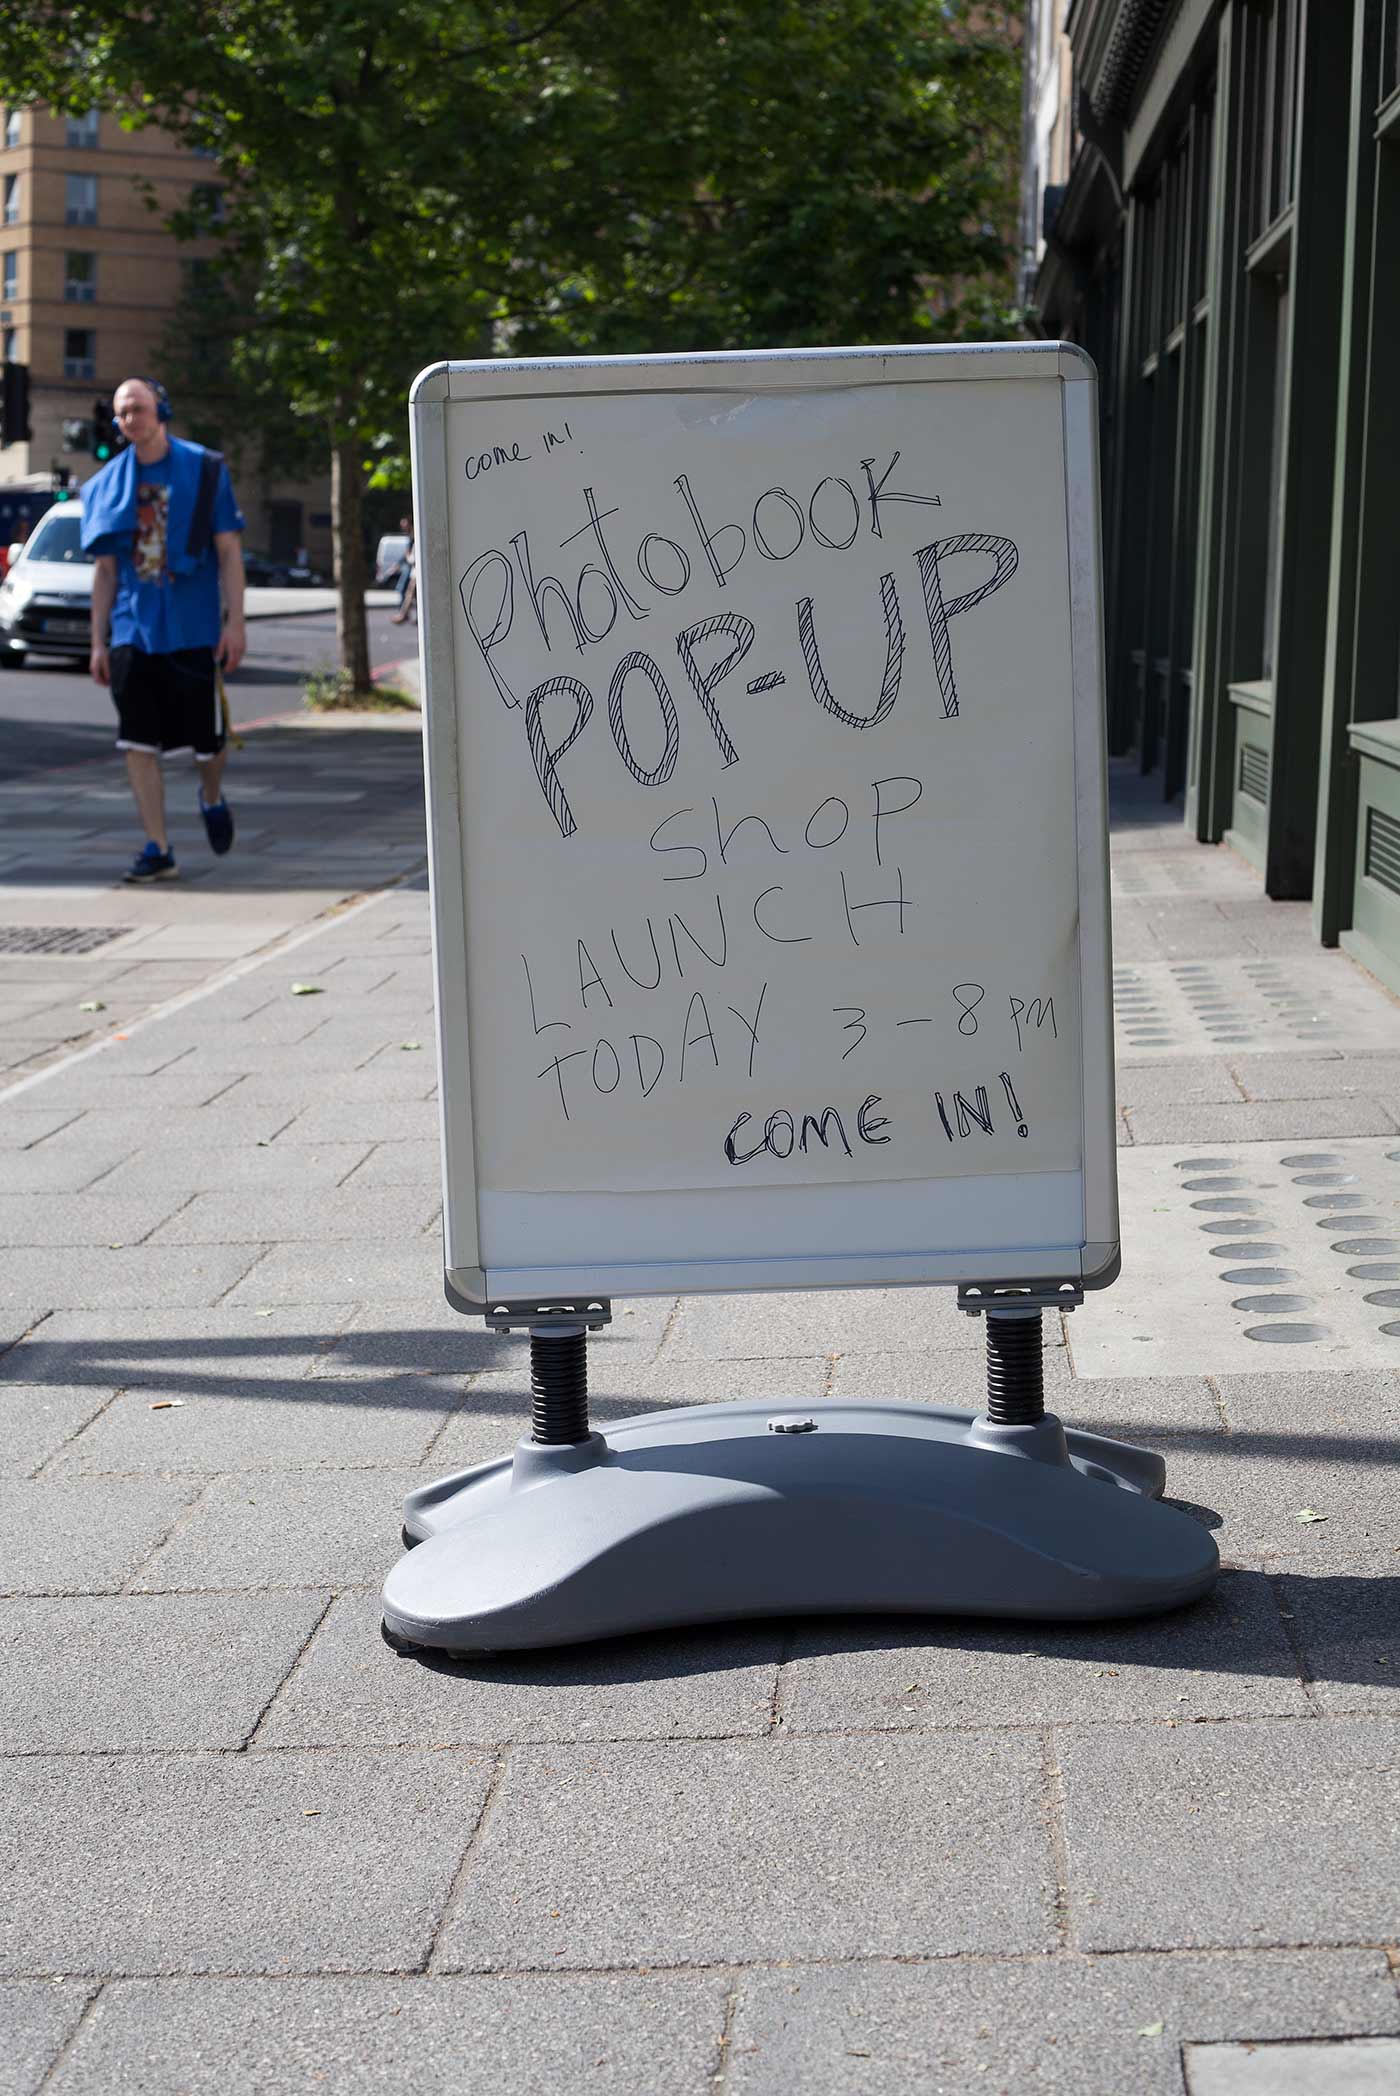 come in!
Photobook
POP-UP
Shop
LAUNCH
TODAY 3-8 PM
COME IN!